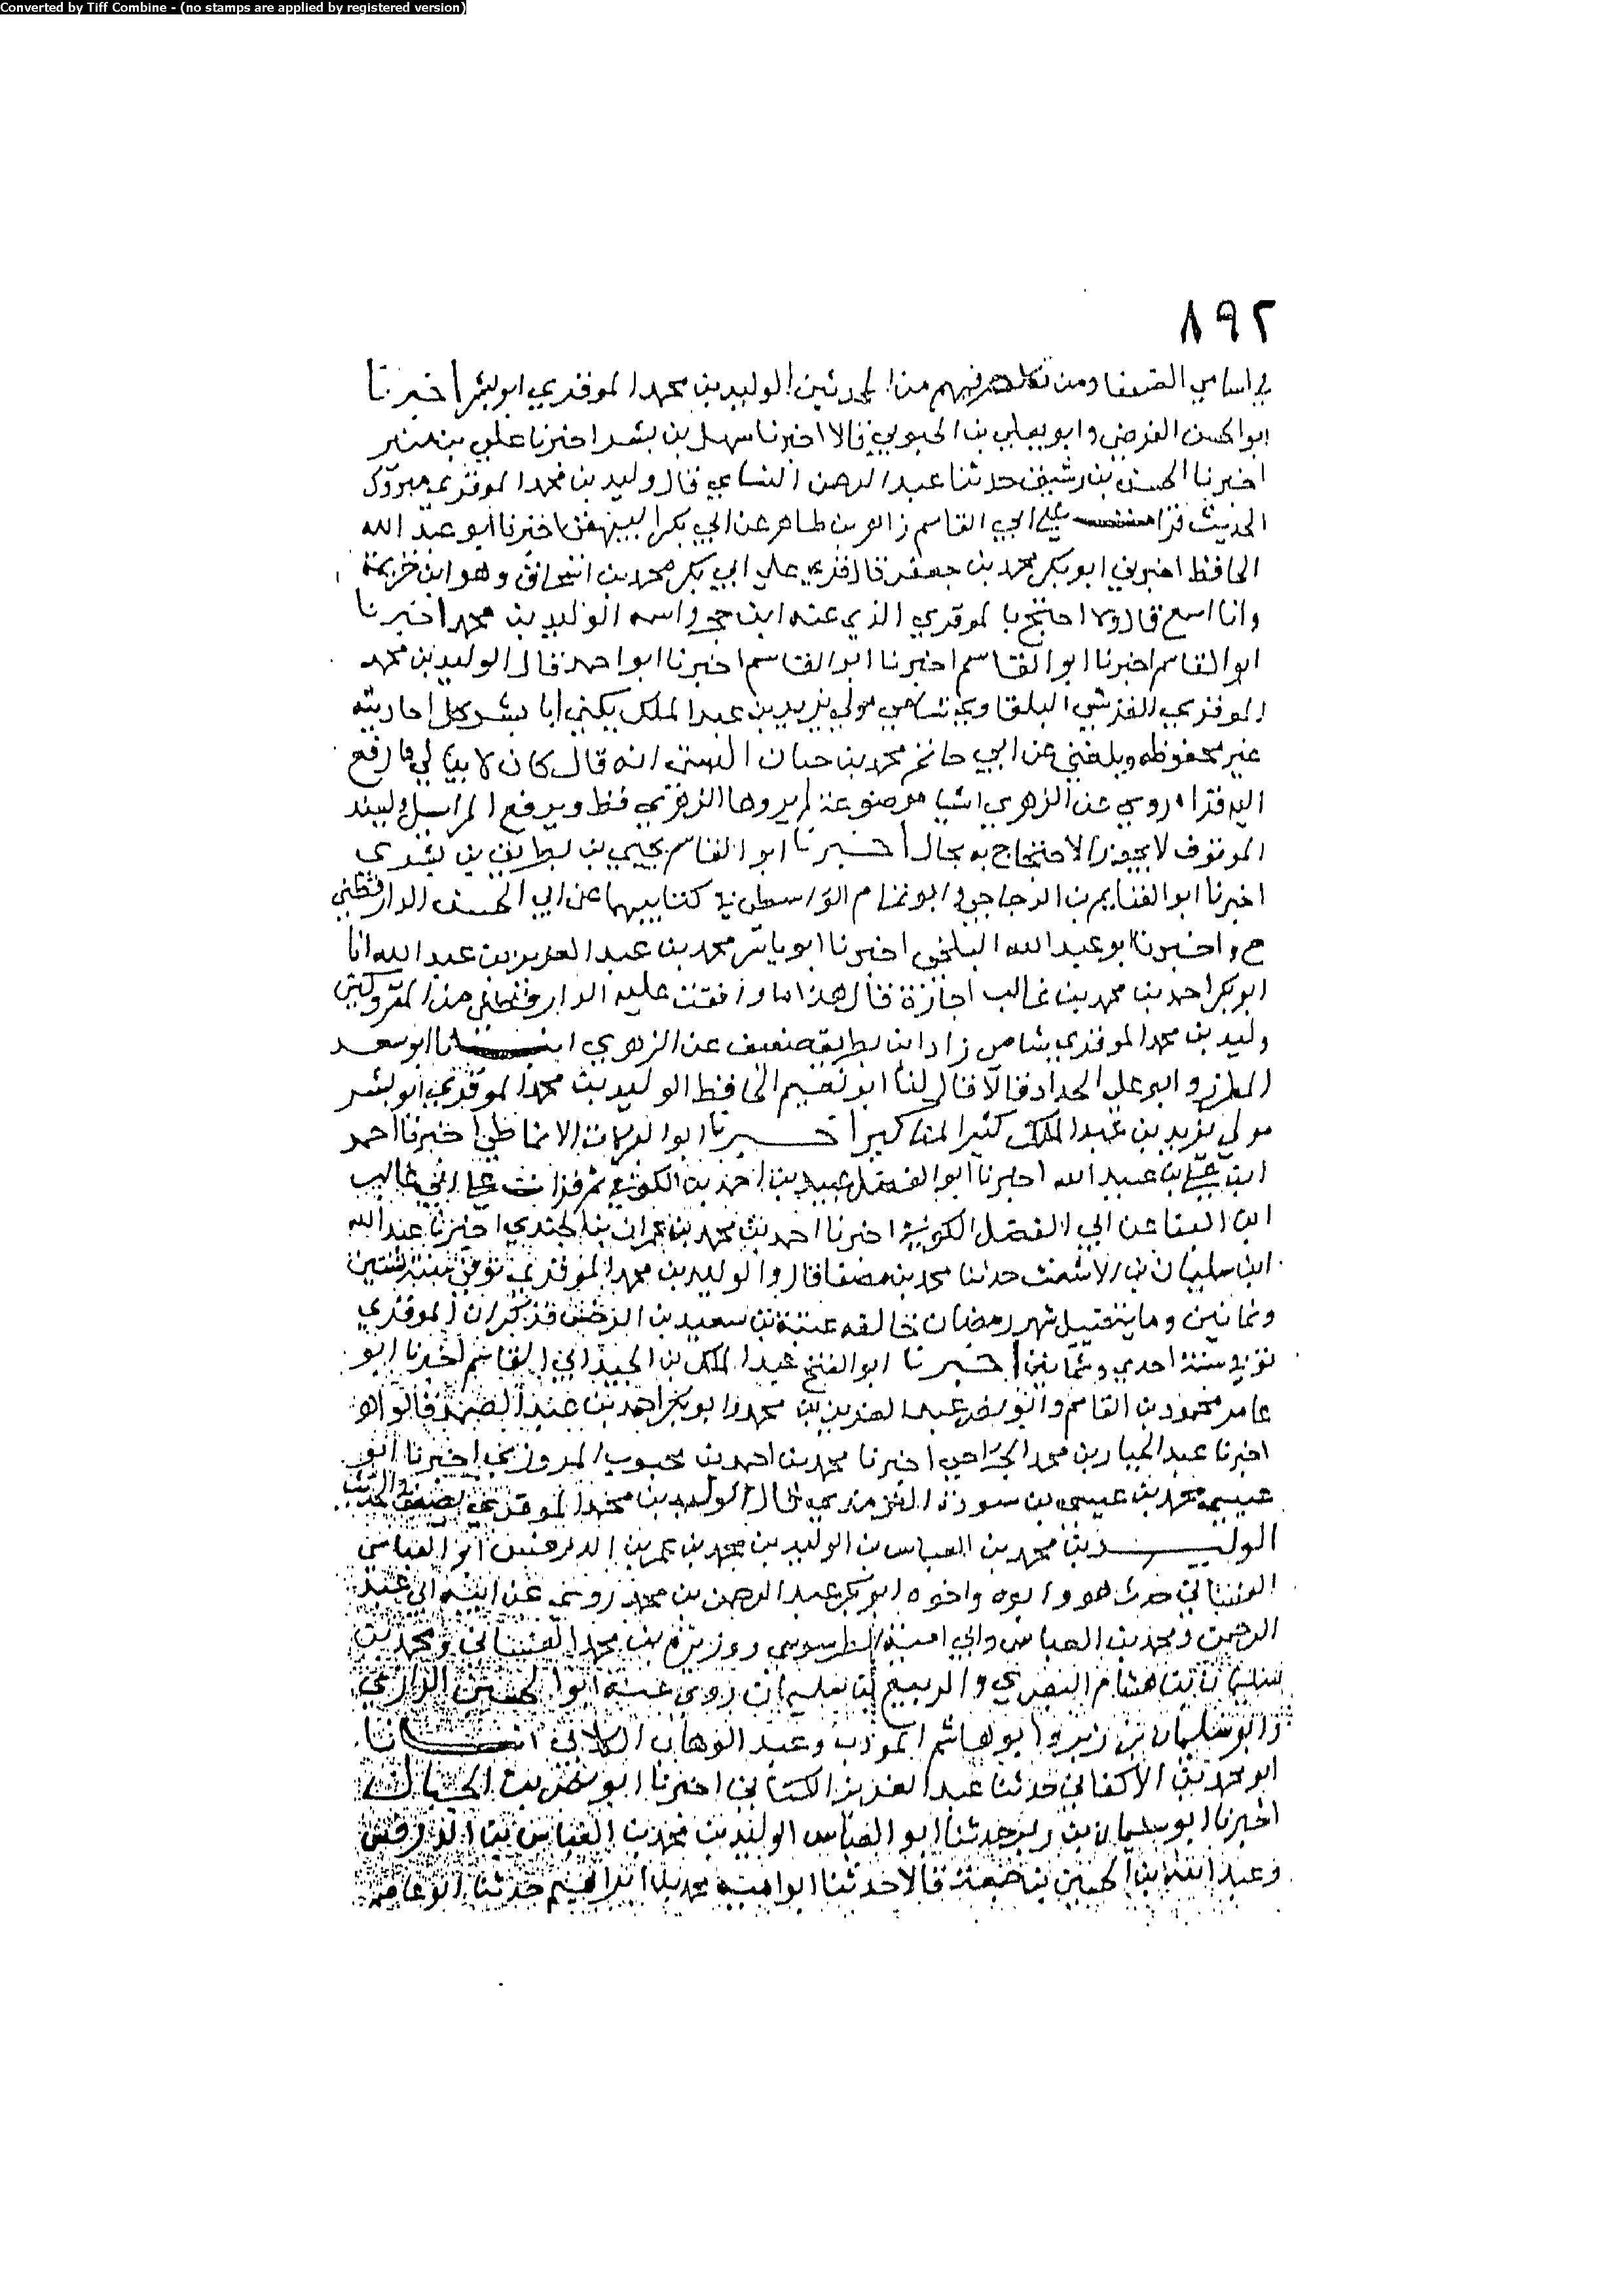 Converted by Tiff Combine - (no stamps are applied by registered version)
٨٩٢
في اسامي الضعفا ومن تكلم فيهم من المحدثين الوليد بن محمد الموقري ابو بشر اخبرنا
ابو الحسن الفرضي وابو يعلي بن الحبوبي قالا اخبرنا سهل بن بشر اخبرنا علي بن منير
اخبرنا الحسن بن رشيق حدثنا عبد الرحمن النساي قال وليد بن محمد الموقري متروك
الحديث قرا علي ابي القاسم زاهر بن طاهر عن ابي بكر البيهقي اخبرنا ابو عبد الله
الحافظ اخبرني ابو بكر محمد بن جعفر قال قري علي ابي بكر محمد بن اسحاق وهو ابن خزيمة
وانا اسمع قال ولا احتج بالموقري الذي عنه ابن حجر واسمه الوليد بن محمد اخبرنا
ابو القاسم اخبرنا ابو القاسم اخبرنا ابو القاسم اخبرنا ابو احمد قال الوليد بن محمد
الموقري القرشي البلقاوي شامي مولي يزيد بن عبد الملك يكني ابا بشر كل احاديثه
غير محفوظه وبلغني عن ابي حاتم محمد بن حبان البستي انه قال كان لا يبالي ما رفع
اليه قراه روي عن الزهري اشيا موضوعة لم يروها الزهري قط ويرفع المراسيل ويسند
الموقوف لا يجوز الاحتجاج به بحال اخبرنا ابو القاسم يحيي بن بطريق بن بشري
اخبرنا ابو الغنايم بن الدجاجي وابو تمام الواسطي في كتابيهما عن ابي الحسن الدارقطني
ح واخبرنا ابو عبد الله البلخي اخبرنا ابو ياسر محمد بن عبد العزيز بن عبد الله انا
ابو بكر احمد بن محمد بن غالب اجازة قال هذا ما وافقت عليه الدارقطني من المتروكين
وليد بن محمد الموقري شامي زاد ابن بطريق ضعيف عن الزهري انبانا ابو سعد
المطرز وابو علي الحداد قالا قال لنا ابو نعيم الحافظ الوليد بن محمد الموقري ابو بشر
مولي يزيد بن عبد الملك كثير المناكير اخبرنا ابو البركات الانماطي اخبرنا احمد
ابن علي بن عبيد الله اخبرنا ابو الفضل عبيد بن احمد بن الكوفي ثم قرات علي ابي غالب
ابن البنا عن ابي الفضل الكوفي اخبرنا احمد بن محمد بن عمران بن الجندي اخبرنا عبد الله
ابن سليمان بن الاشعث حدثنا محمد بن مصفا قال والوليد بن محمد الموقري توفي سنة ثنتين
وثمانين وماية قبل شهر رمضان خالفه عتبة بن سعيد بن الرخص فذكر ان الموقري
توفي سنة احدي وثمانين اخبرنا ابو الفتح عبد الملك بن ابي القاسم اخبرنا ابو
عامر محمود بن القاسم وابو نصر عبد العزيز بن محمد وابو بكر احمد بن عبد الصمد قالوا
اخبرنا عبد الجبار بن محمد الجراحي اخبرنا محمد بن احمد بن محبوب المروزي اخبرنا ابو
عيسي محمد بن عيسي بن سورة الترمذي قال الوليد بن محمد الموقري يضعف في الحديث
الوليد بن محمد بن العباس بن الوليد بن محمد بن عمر بن الدرفس ابو العباس
الغساني حدث هو وابوه واخوه ابو بكر عبد الرحمن بن محمد روي عن ابيه ابي عبد
الرحمن ومحمد بن العباس وابي امية الطرسوسي ووزيرة بن محمد الغساني ومحمد بن
سليمان بن هشام البصري والربيع بن سليمان روي عنه ابو الحسين الرازي
وابو سليمان بن زبر وابو هاشم المودب وعبد الوهاب الكلابي انبانا
ابو محمد بن الاكفاني حدثنا عبد العزيز الكتاني اخبرنا ابو نصر بن الحبان
اخبرنا ابو سليمان بن زبر حدثنا ابو العباس الوليد بن محمد بن العباس بن الدرفس
وعبد الله بن الحسين بن جمعة قالا حدثنا ابو امية محمد بن ابراهيم حدثنا ابو عاصم